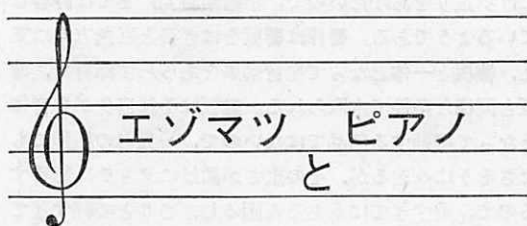 エゾマツ と ピアノ